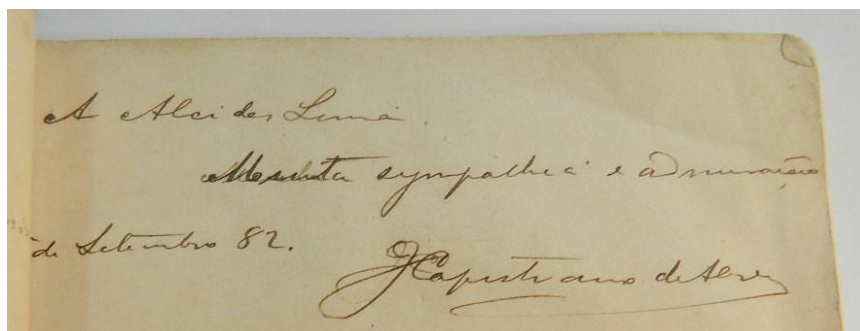 A Alcides Lima.
Muita sympathia e admiração
de Setembro 82.
JCapistrano de Abreu